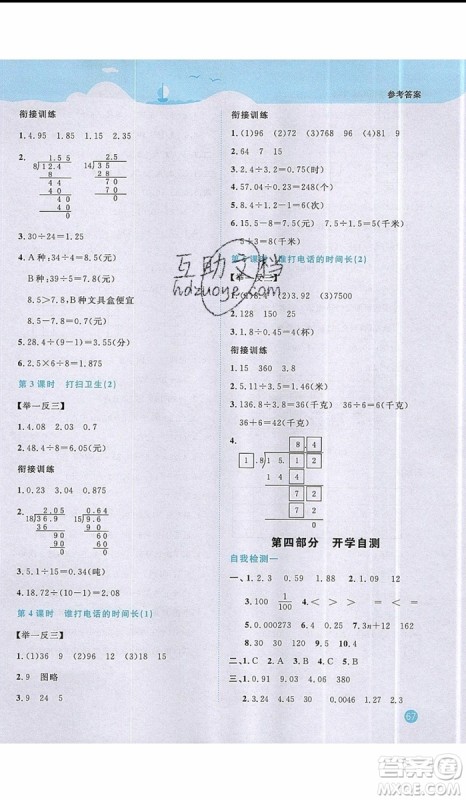 参考答案
衔接训练
1.4.95 1.85 1.115
2.
1.55
8)12.4
8
44
40
40
40
0
2.5
14)35
28
70
70
0
3.30÷24=1.25
4.A种:34÷4=8.5(元)
B种:39÷6=6.5(元)
8.5>6.5 B种文具盒便宜
5.28.4÷8=3.55(分)
6.2.5×6÷8=1.875
第3课时 打扫卫生(2)
【举一反三】
1.4.08 2.03 0.7
2.48.4÷8=6.05(元)
衔接训练
1.0.23 3.04 0.75
2.
2.05
18)36.9
36
90
90
0
0.64
15)9.6
90
60
60
0
3.5.1÷15=0.34(吨)
4.18.72÷(10−1)=2.08
第4课时 谁打电话的时间长(1)
【举一反三】
1.(1)36 (2)96 (3)12 18 15
2.9 图略
3.9 24 5
衔接训练
1.(1)96 (2)72 (3)768 16 48
2.64 7 15
3.2.4÷0.3=8(时)
4.57.04÷0.23=248(个)
5.8.4÷1.2−1=6(元)
6.15.5−8=7.5(千米) 7.5÷1.5=5(时)
5÷3=8(千米)
课时 谁打电话的时间长(2)
【举一反三】
2.128 150 25
3.1.8÷0.45=4(杯)
衔接训练
1.15 360 3.8
2.136.8÷3.8=36(千克)
3.136.8÷3.8=36(千克)
36÷6=42(千克)
4.
8.4
1.8)15.12
144
72
72
0
第四部分 开学自测
自我检测一
一、1.2.3 0.59 1.88 2.
3.100 1/100 4.< > = <
5.0.000273 6.15 7.3n+2 16
8.230 30 9.27
二、1.C 2.A 3.B 4.A 5.C
三、1. 24.3 30 0.0046 1.27 2
67
互助文档
hdzuoye.com
答案圈
MXQE.COM